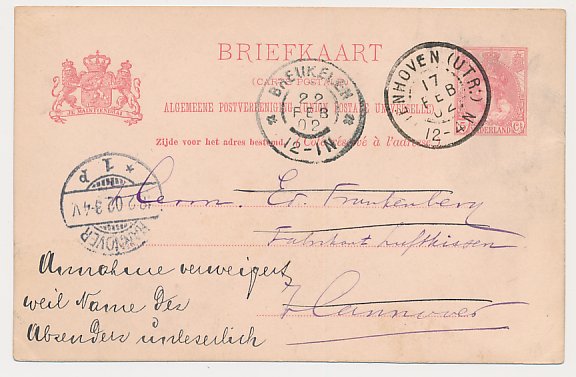 BRIEFKAART
(CARTE POSTALE)
ALGEMEENE POSTVEREENIGING UNION POSTALE UNIVERSELLE
Zijde voor het adres bestemd. Côté réservé à l'adresse.
JE MAINTIENDRAI
NEDERLAND
BREUKELEN
22
FEB
02
12-1N
ENHOVEN (UTR:)
17
FEB
02
12-4N
HANNOVER
02.3-4V
* 1 p
Herrn. Ed. Frankenberg
Fabrikant Luftkissen
Hannover
Annahme verweigert
weil Name des
Absenders unleserlich